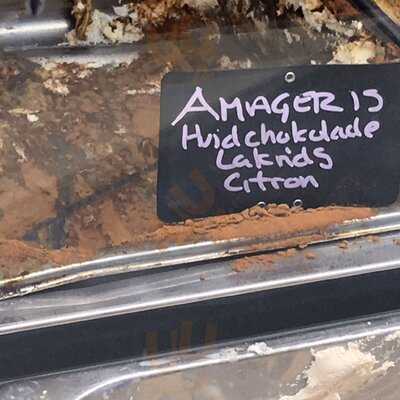 AMAGER IS
Hvidchokolade
Lakrids
Citron